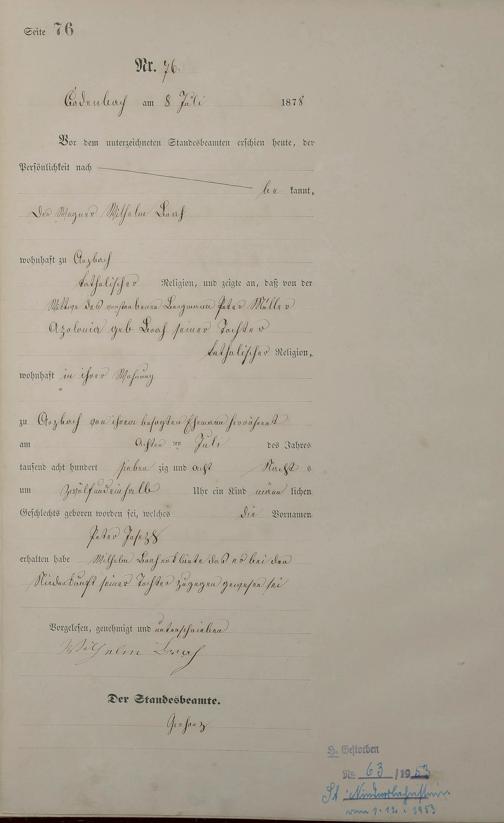 Seite 76
Nr. 76.
Cadenbach am 8 Juli 1878
Vor dem unterzeichneten Standesbeamten erschien heute, der
Persönlichkeit nach
be kannt,
Der Wagner Wilhelm
wohnhaft zu Arzbach
katholischer Religion, und zeigte an, daß von der
Wittwe des verstorbenen Bergmann Peter Müller
Apolonia geb seiner Tochter
katholischer Religion,
wohnhaft in ihrer Wohnung
zu Arzbach von ihrem besagten Ehemann
am Achten ten Juli des Jahres
tausend acht hundert sieben zig und acht Nachts
um zwölfundeinhalb Uhr ein Kind männ lichen
Geschlechts geboren worden sei, welches die Vornamen
Peter Josef
erhalten habe Wilhelm das er bei der
Niederkunft seiner Tochter zugegen gewesen sei
Vorgelesen, genehmigt und unterschrieben
Wilhelm
Der Standesbeamte.
H. Gestorben
Nr. 63 /19 53
St. Niederlahnstein
vom 1.12.1953